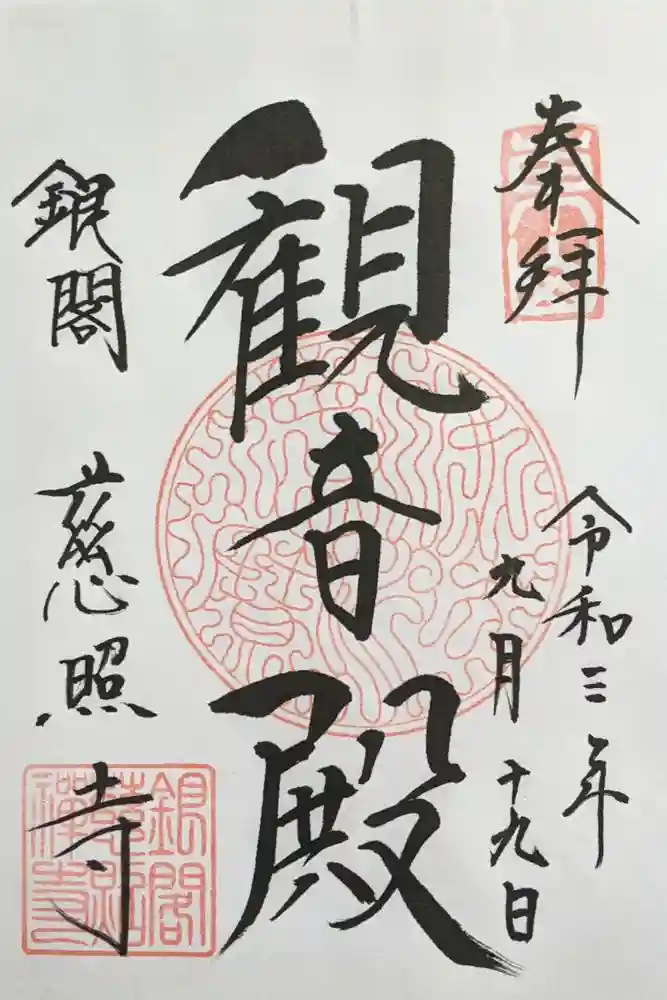 奉拝
令和三年
九月十九日
観音殿
銀閣 慈照寺
銀閣
慈照
禅寺